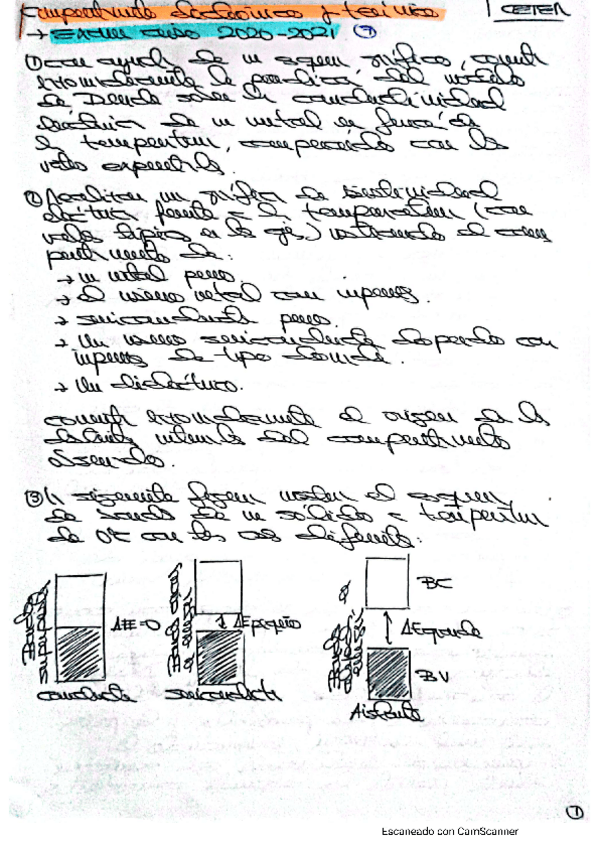 Comportamiento electrónico y térmico | CETEM
→ Examen curso 2020-2021 ⑦
① Con ayuda de un esquema gráfico, comenta
razonadamente la predicción del modelo
de Drude sobre la conductividad
eléctrica de un metal en función de
la temperatura, comparándolo con los
datos experimentales.
② Realizar un gráfico de resistividad
eléctrica frente a la temperatura (con
valores típicos en los ejes) mostrando el com
portamiento de:
→ un metal puro.
→ el mismo metal con impurezas.
→ semiconductor puro.
→ Un mismo semiconductor dopado con
impurezas de tipo
→ Un dieléctrico.
comenta razonadamente el origen de las
del comportamiento
observado.
③ La siguiente figura muestra el esquema
de bandas de un sólido a temperatura
de 0K con las diferentes:
ΔE=0
conductor
ΔEpequeño
semiconductor
BC
ΔEgrande
BV
Aislante
①
Escaneado con CamScanner